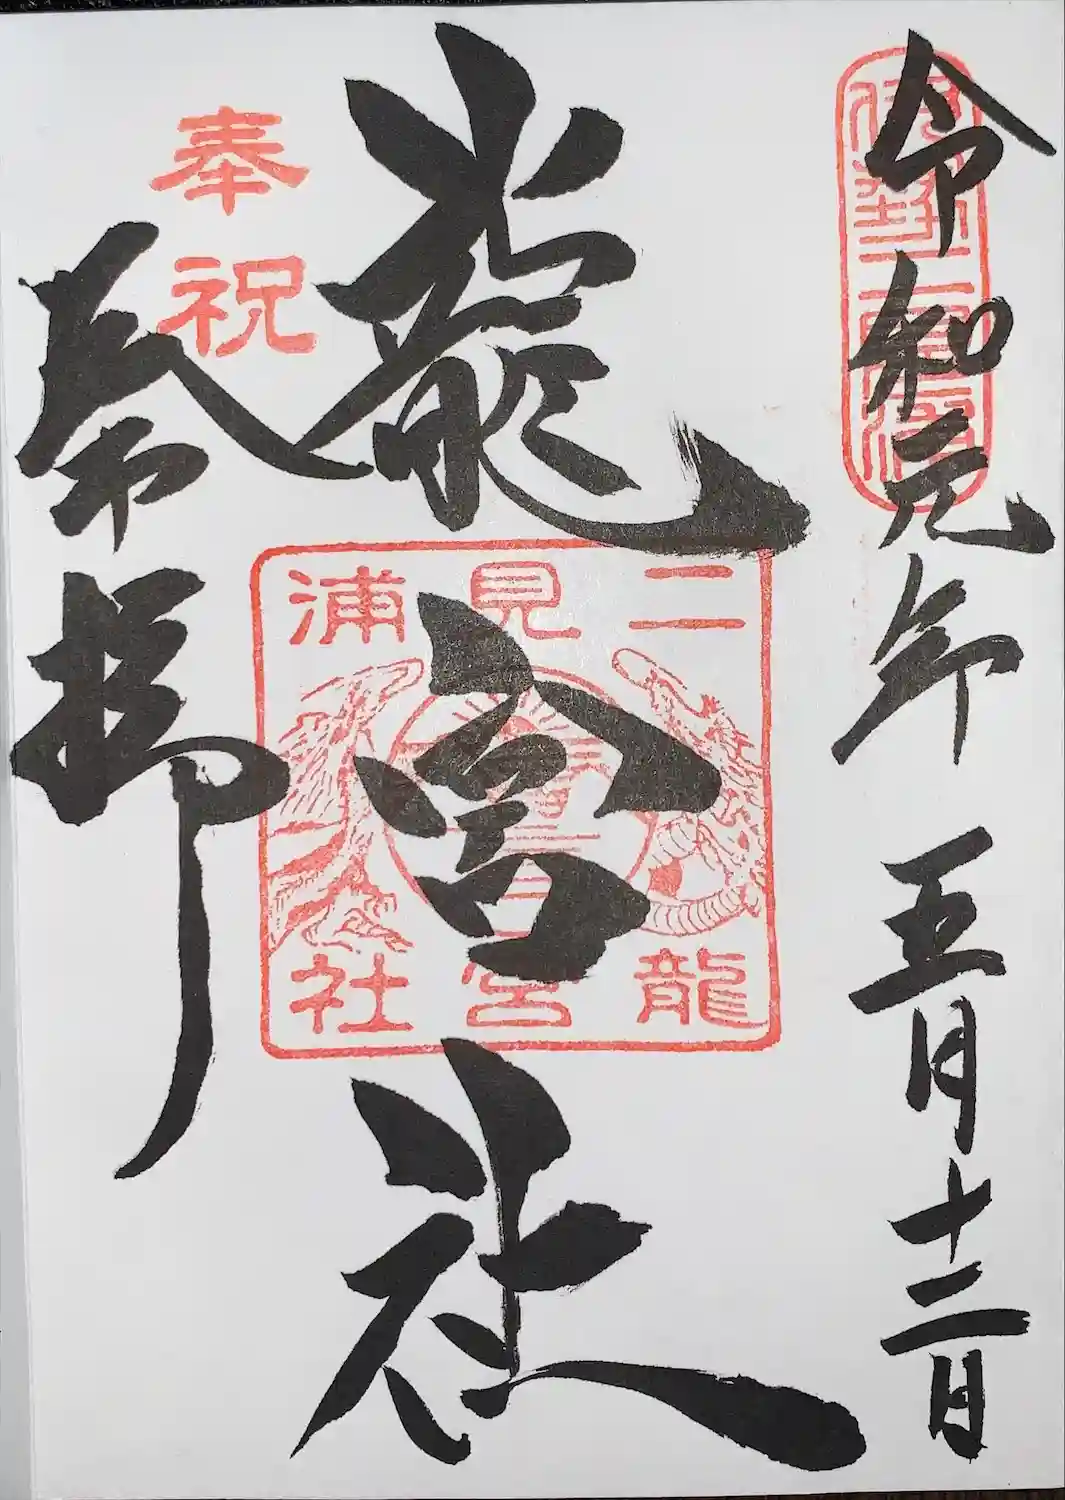 令和元年 五月十二日
龍宮社
奉拝
奉祝
二見浦
龍宮社